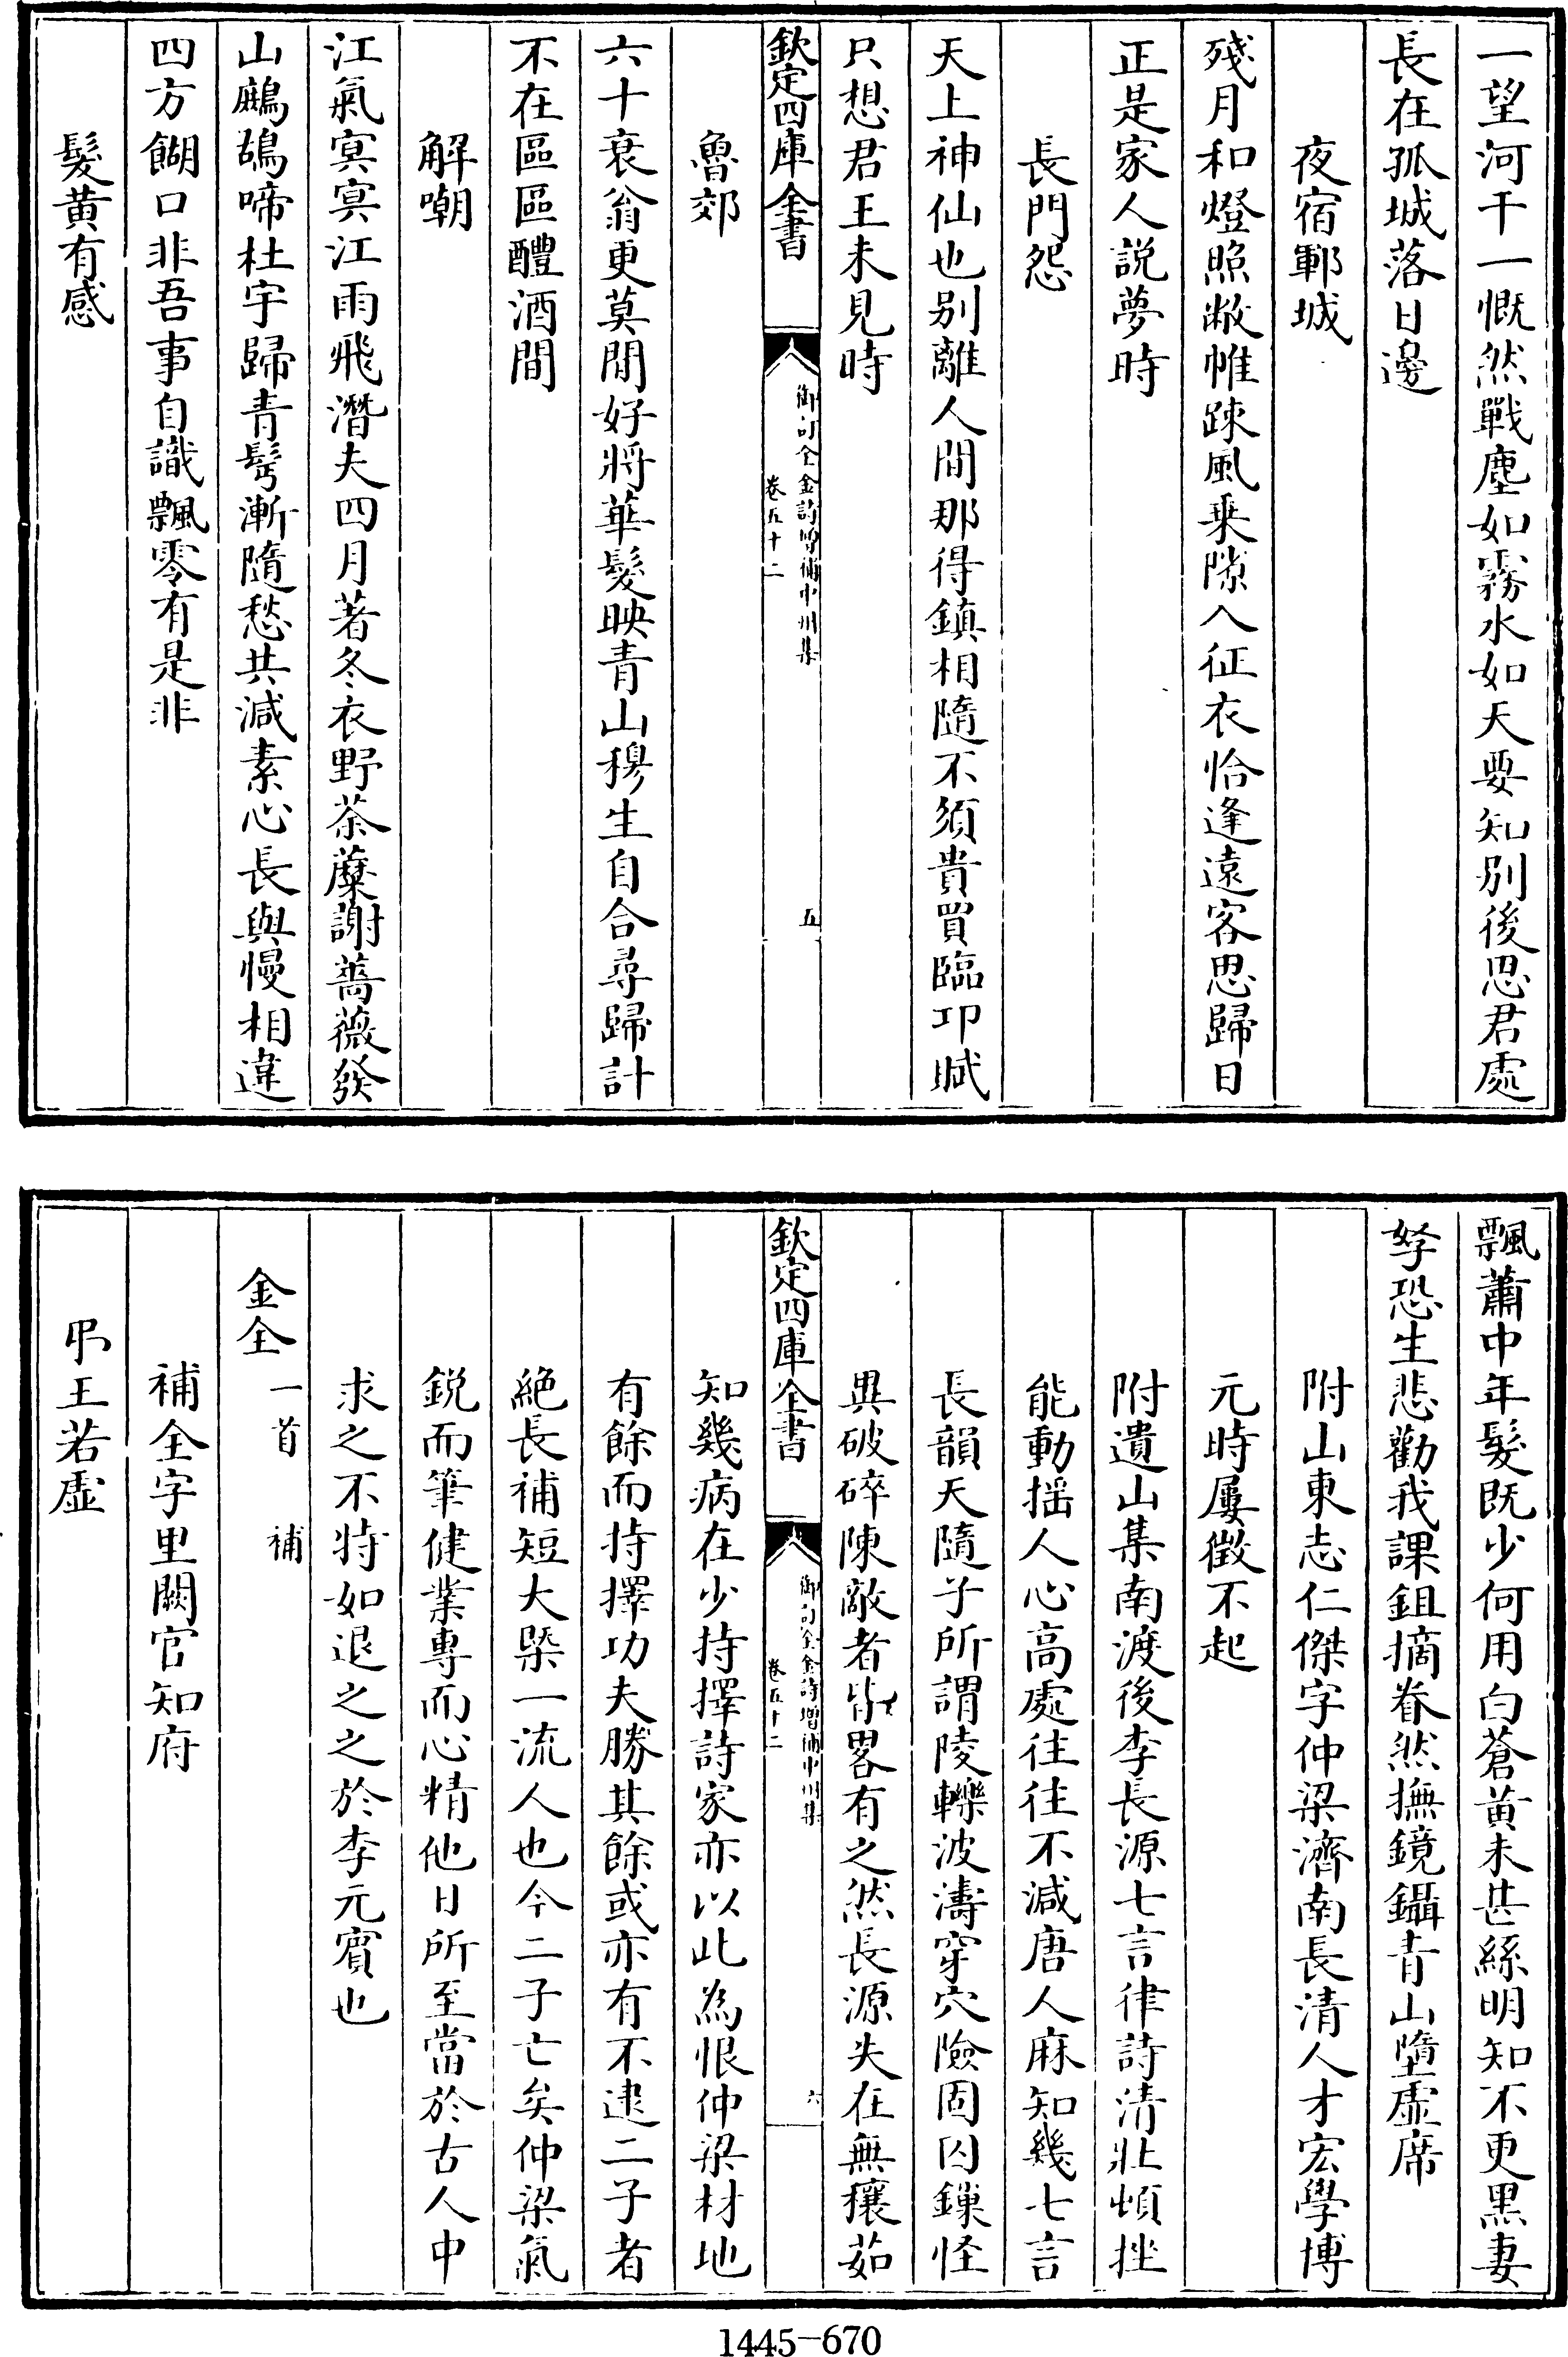 一望河干一慨然戰塵如霧水如天要知别後思君處
長在孤城落日邊
夜宿鄆城
殘月和燈照敝帷踈風乗隙入征衣恰逢逺客思歸日
正是家人説夢時
長門怨
天上神仙也别離人間那得鎮相隨不須貴買臨卭賦
只想君王未見時
欽定四庫全書
御訂全金詩增補中州集
卷五十二
五
魯郊
六十衰翁更莫閒好將華髮映青山穆生自合尋歸計
不在區區醴酒間
解嘲
江氣㝠㝠江雨飛潛夫四月著冬衣野荼蘼謝薔薇發
山鷓鴣啼杜宇歸青髩漸隨愁共減素心長與慢相違
四方餬口非吾事自識飄零有是非
髮黄有感
飄蕭中年髮既少何用白蒼黄未甚絲明知不更黒妻
孥恐生悲勸我課鉏摘眷然撫鏡鑷青山墮虚席
附山東志仁傑字仲梁濟南長清人才宏學博
元時屢徵不起
附遺山集南渡後李長源七言律詩清壯頓挫
能動揺人心髙處往往不減唐人麻知幾七言
長韻天隨子所謂陵轢波濤穿穴險固囚鏁怪
異破碎陳敵者皆畧有之然長源失在無穰茹
欽定四庫全書
御訂全金詩增補中州集
卷五十二
六
知幾病在少持擇詩家亦以此為恨仲梁材地
有餘而持擇功夫勝其餘或亦有不逮二子者
絶長補短大槩一流人也今二子亡矣仲梁氣
鋭而筆健業專而心精他日所至當於古人中
求之不特如退之之於李元賓也
金全一首 補
補全字里闕官知府
弔王若虚
1445-670